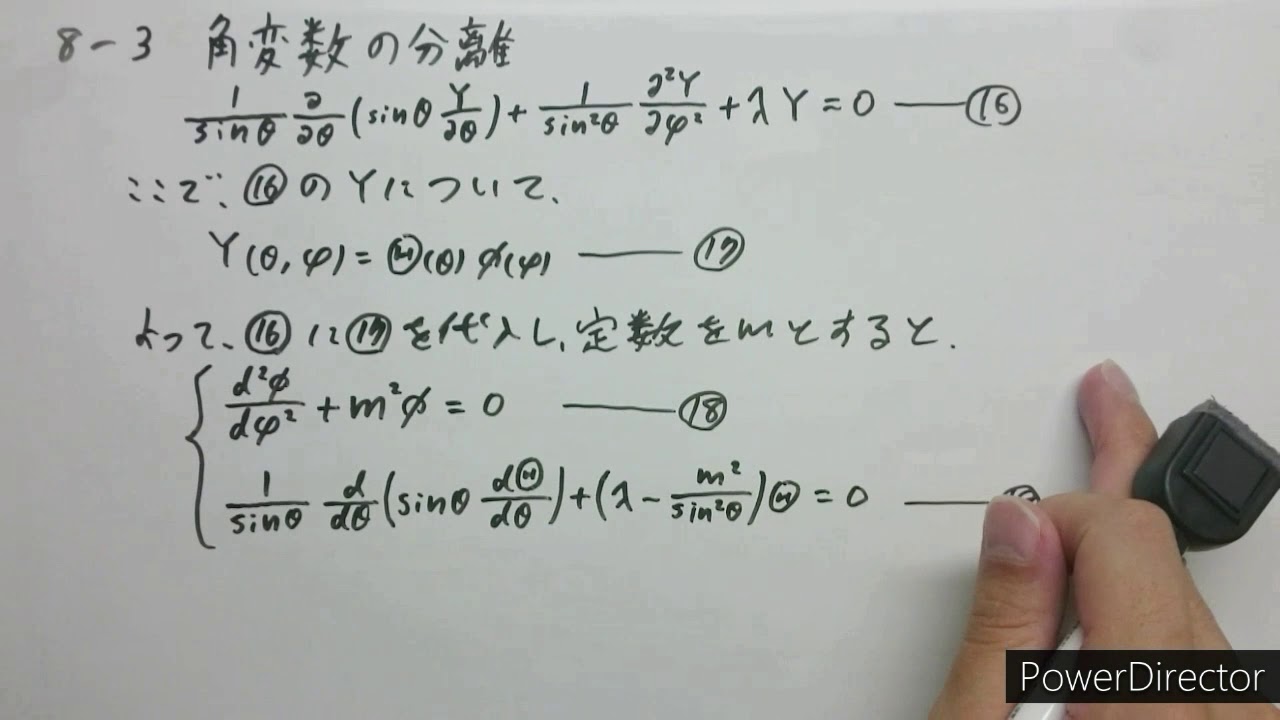 8-3 角変数の分離
1/sinθ ∂/∂θ (sinθ Y/∂θ) + 1/sin²θ ∂²Y/∂φ² + λY = 0 ―― ⑯
ここで、⑯のYについて、
Y(θ, φ) = Θ(θ) ϕ(φ) ―― ⑰
よって、⑯に⑰を代入し、定数をmとすると、
d²ϕ/dφ² + m²ϕ = 0 ―― ⑱
1/sinθ d/dθ (sinθ dΘ/dθ) + (λ - m²/sin²θ)Θ = 0 ――
PowerDirector